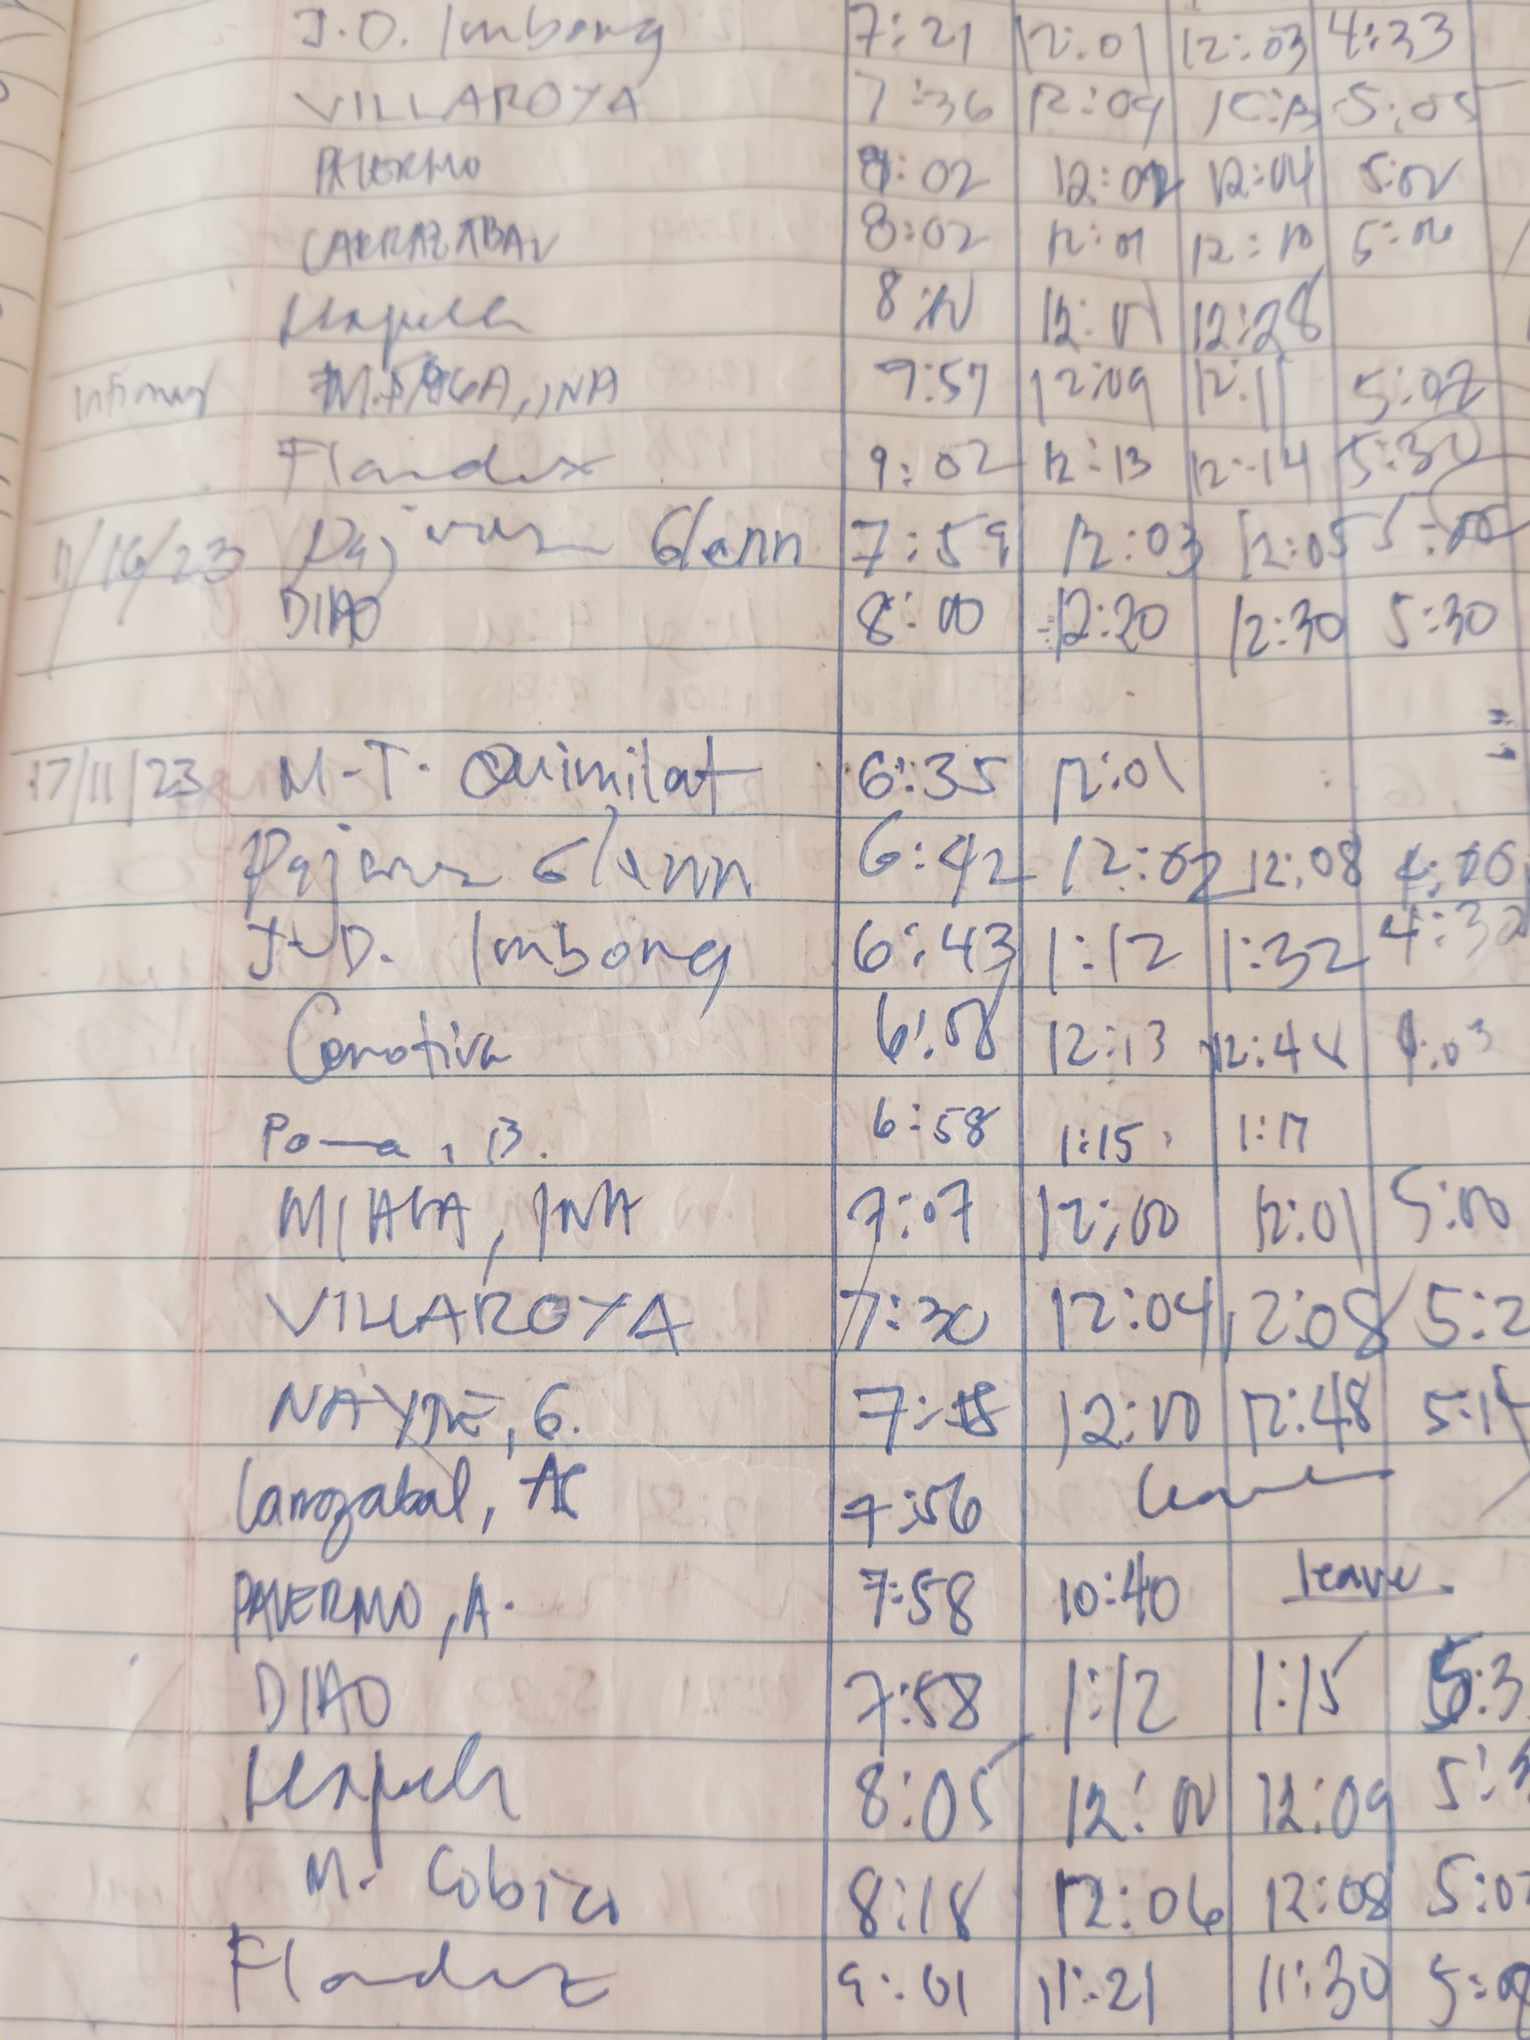 J.D. Imbong 7:21 12:01 12:03 4:33
VILLAROYA 7:36 12:09 5:05
PALERMO 8:02 12:02 12:04 5:02
CARRAZABAL 8:02 12:01 12:10 5:06
8:10 12:01 12:28
MIAGA, INA 7:57 12:09 12:11 5:02
Flandez 9:02 12:13 12:14 5:30
11/16/23 Glenn 7:59 12:03 12:05 5:00
DIAO 8:00 12:20 12:30 5:30
17/11/23 M.T. Quimilat 6:35 12:01
Glenn 6:42 12:02 12:08 4:06
J.D. Imbong 6:43 1:12 1:32 4:32
6:58 12:13 12:48
B. 6:58 1:15 1:17
MIAGA, INA 7:07 12:00 12:01 5:00
VILLAROYA 7:30 12:04 12:08 5:2
NAYRE, G. 12:10 12:48 5:1
Carrozabal, AC 7:56 leave
PALERMO, A. 7:58 10:40 leave.
DIAO 7:58 1:12 1:15 5:3
8:05 12:10 12:09
M. Cobico 8:18 12:06 12:08 5:0
Flandez 9:01 11:21 11:30 5:0